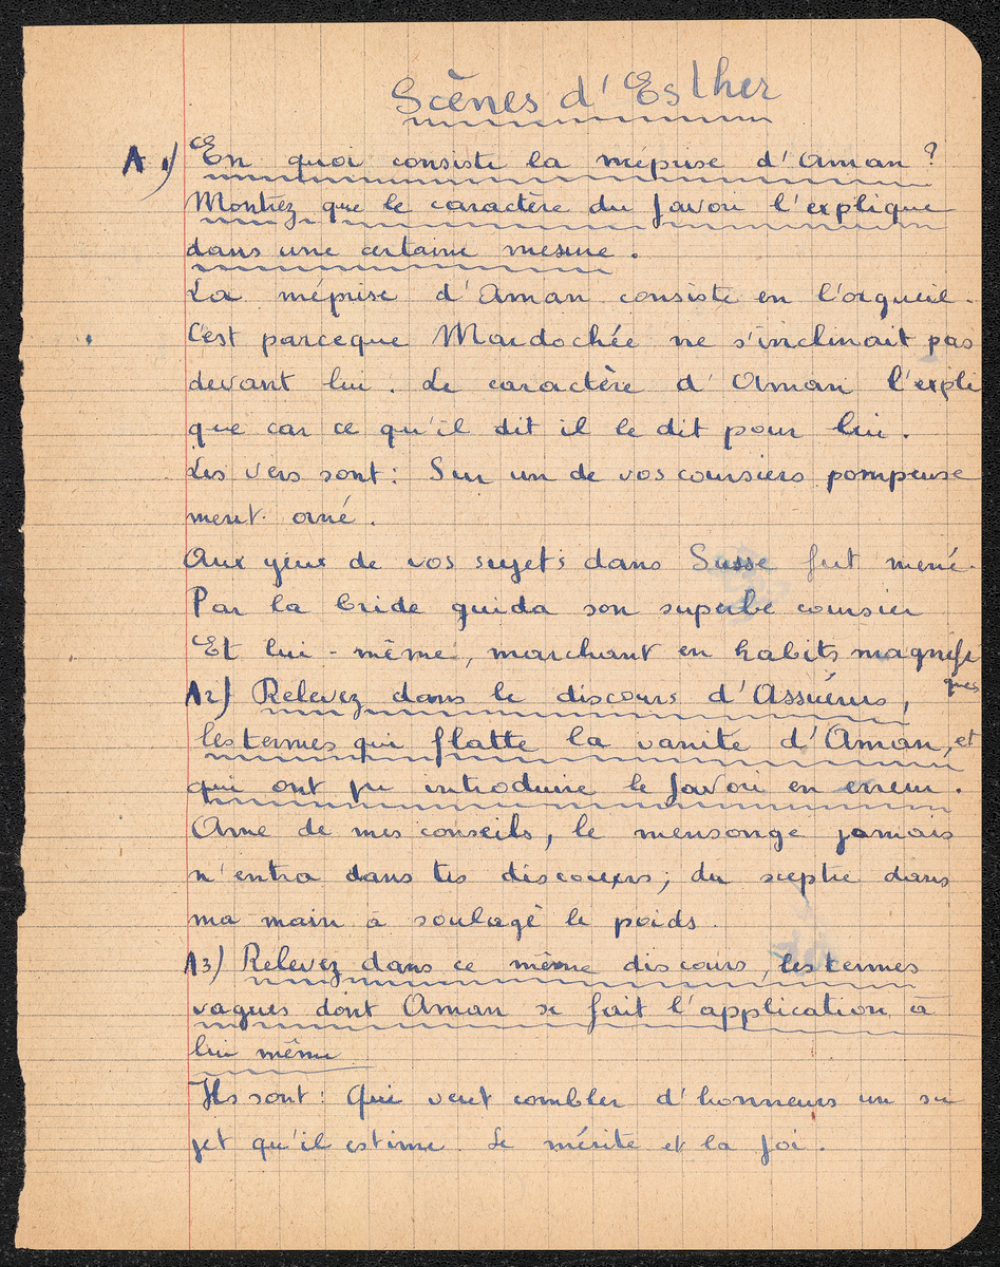 Scènes d'Esther
A 1) En quoi consiste la méprise d'Aman ?
Montrez que le caractère du favori l'explique
dans une certaine mesure.
La méprise d'Aman consiste en l'orgueil.
C'est parceque Mardochée ne s'inclinait pas
devant lui. Le caractère d'Aman l'expli
que car ce qu'il dit il le dit pour lui.
Les vers sont : Sur un de vos coursiers pompeuse
ment orné.
Aux yeux de vos sujets dans Susse fut mené.
Par la bride guida son superbe coursier
Et lui-même, marchant en habits magnifi
ques
A2) Relevez dans le discours d'Assuérus,
les termes qui flatte la vanité d'Aman, et
qui ont pu introduire le favori en erreur.
Ame de mes conseils, le mensonge jamais
n'entra dans tes discours ; du sceptre dans
ma main a soulagé le poids.
A3) Relevez dans ce même discours, les termes
vagues dont Aman se fait l'application à
lui même
Ils sont : Qui veut combler d'honneurs un su
jet qu'il estime. Le mérite et la foi.